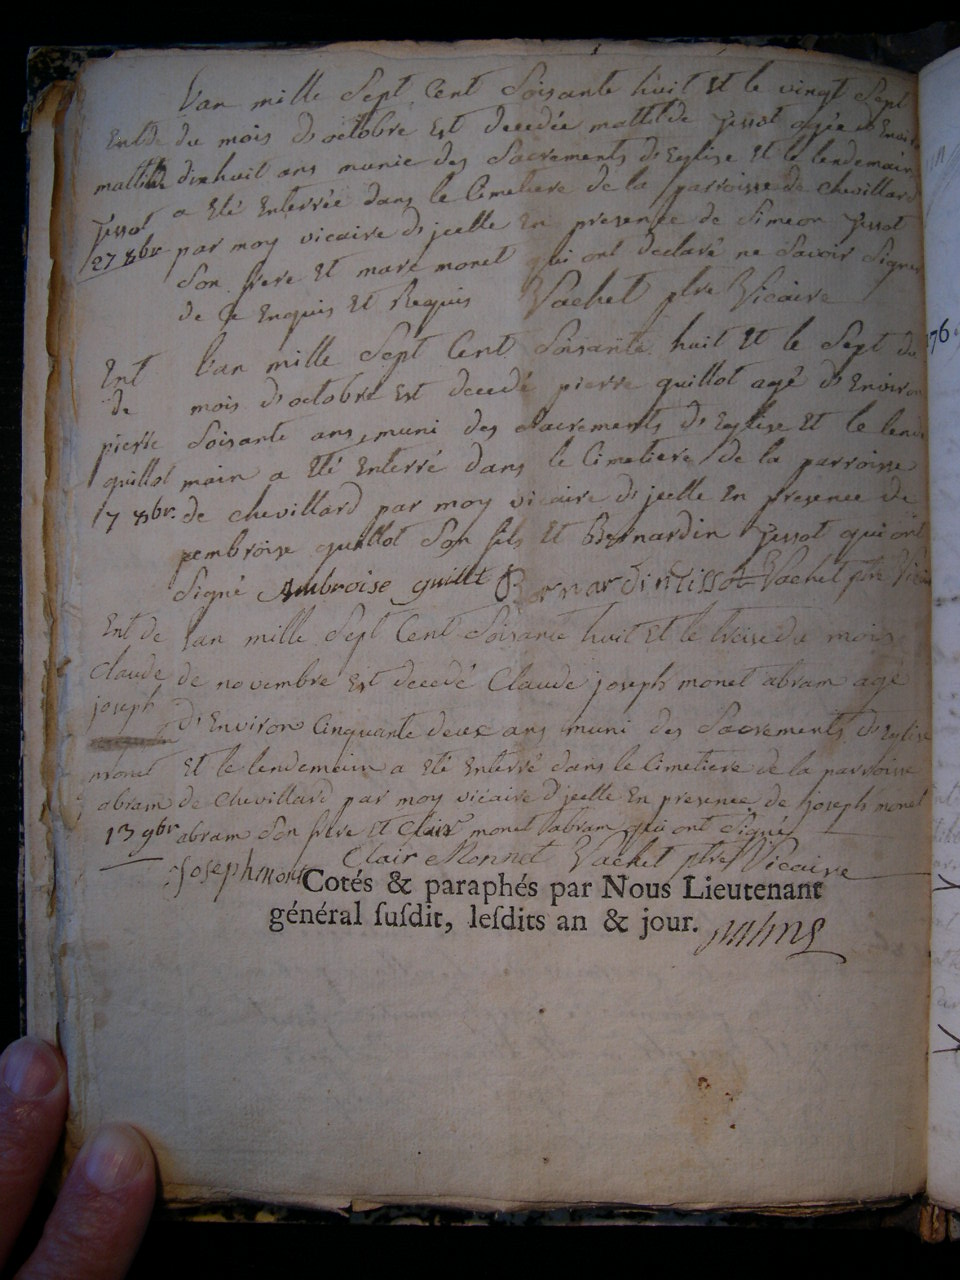 L'an mille Sept Cent Soisante huit Et le vingt Sept
Ent de du mois d'octobre Est decedée mattilde Jussot agée d'Environ
mattilde dixhuit ans munie des Sacrements d'Eglise Et le lendemain
Jussot a Eté Enterrée dans le Cimetiere de la parroisse de chevillard
27 8br par moy vicaire d'jcelle En presence de Simeon Jussot
Son frere Et marc monet qui ont declaré ne Savoir Signer
de ce Enquis Et Requis Vachet ptre Vicaire
Ent L'an mille Sept Cent Soisante huit Et le Sept du
de mois d'octobre Est decedé pierre guillot agé d'Environ
pierre Soisante ans, muni des Sacrements d'Eglise Et le lende
guillot main a Eté Enterré dans le Cimetiere de la parroisse
7 8br. de chevillard par moy vicaire d'jcelle En presence de
embroise guillot Son fils Et Bernardin Jussot qui ont
Signé Ambroise guillt Bernardin tissot Vachet ptre Vicaire
Ent de l'an mille Sept Cent Soisante huit Et le treise du mois
Claude de novembre Est decedé Claude joseph monet abram agé
joseph d'Environ Cinquante deux ans muni des Sacrements d'Eglise
monet Et le lendemain a Eté Enterré dans le Cimetiere de la parroisse
abram de Chevillard par moy vicaire d'jcelle En presence de joseph monet
13 9br abram Son frere Et Clair monet abram qui ont Signé
Joseph monet Clair Monnet Vachet ptre Vicaire
Cotés & paraphés par Nous Lieutenant
général ſuſdit, leſdits an & jour.
176.